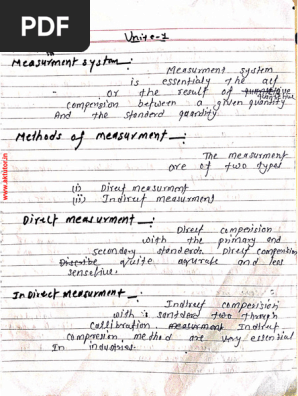 PDF
Unite-1
Measurment system:
Measurment system
is essentialy the act
or the result of quantitive
compersion between a given quantity
And the standerd quantity
Methods of measurment :
The measurment
are of two types
(i) Direct measurment
(ii) Indirect measurment
Direct measurment :
Direct compersion
with the primary and
secondary standards. Direct compersion
Discribe quite aqurate and less
sensetive.
InDirect measurment :
Indirect comperision
with a standerd two through
callibration. measurment Indirect
compresion, method are very essential
In industries.
www.aktutor.in